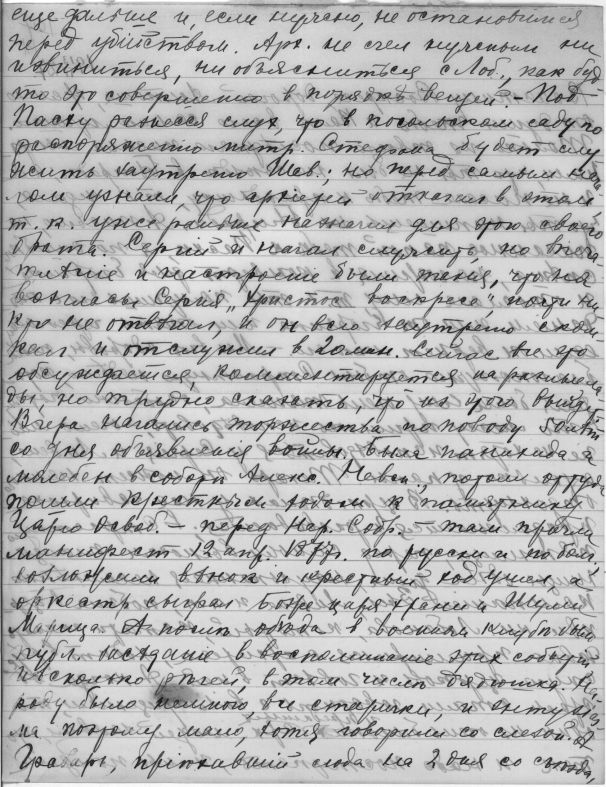 еще дальше и, если нужно, не остановимся
перед убійством. Арх. не счел нужным ни
извиниться, ни объясниться с Лоб., как буд
то это совершенно в порядкѣ вещей. – Под
Пасху разнесся слух, что в посольском саду по
распоряжению митр. Стефана будет слу
жить заутреню Шав.; но перед самым нача
лом узнали, что архіерей отказал в этом
т. к. уже раньше назначил для этого своего
брата. Сергій и начал служить, но впеча
тлѣніе и настроеніе были такія, что на
возгласы Сергія "Христос воскресе", почти ни
кто не отвѣчал, и он всю заутреню ском
кал и отслужил в 20 мин. Сейчас все это
обсуждается, комментируется на разные ла
ды, но трудно сказать, что из этого выйдет
Вчера начались торжества по поводу 50 лѣт
со дня объявленія войны. Была панихида и
молебен в соборѣ Алекс. Невск., потом оттуда
пошли крестным ходом к памятнику
Царю Освоб. – перед Нар. Собр. – там прочли
манифест 12 апр. 1877 г. по русски и по болг.
возложили вѣнок и крестный ход ушел, а
оркестр сыграл Боже царя храни и Шуми
Марица. А послѣ обѣда в военном клубѣ было
публ. засѣданіе в воспоминаніе этих событій
Нѣсколько рѣчей, в том числѣ дядюшка. На
роду было немного все старички, и энтузіаз
ма поэтому мало, хотя говорили со слезой. А
Граварь, пріѣхавшій сюда на 2 дня со съѣзда,